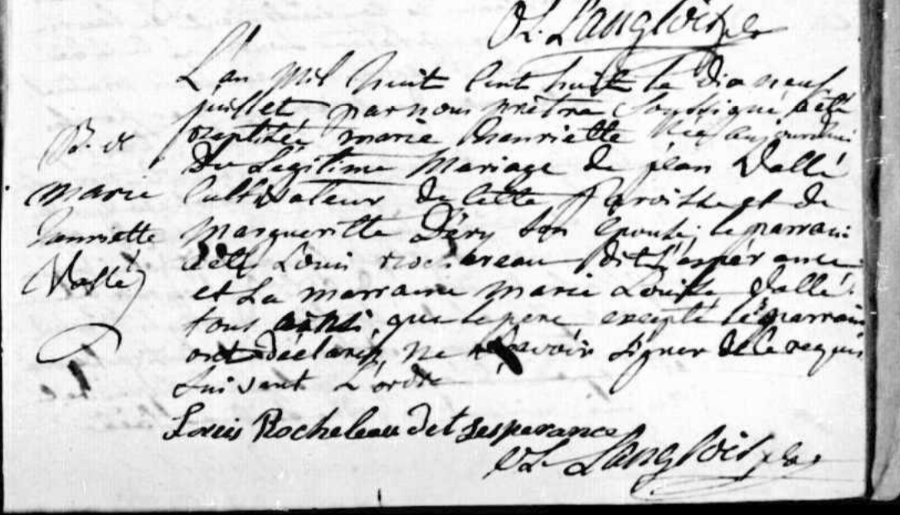 O L. Langlois ptre
L'an Mil huit Cent huit le dix neuf
juillet par nous prêtre soussigné a été
baptisée marie henriette née aujourdhui
Du Legitime Mariage de jean Vallé
Cultivateur de cette Paroisse et de
Margueritte Déry son épouse. le parrain
a été Louis rochereau dit L'espérance
et La marraine marie Louise Vallé.
tous que le pere excepté le parrain
ont déclarés ne savoir signer de ce requis
suivant L'ordce
Louis Rocheleau det Lesperance
O L. Langlois ptre
B. de
marie
henriette
Vallé